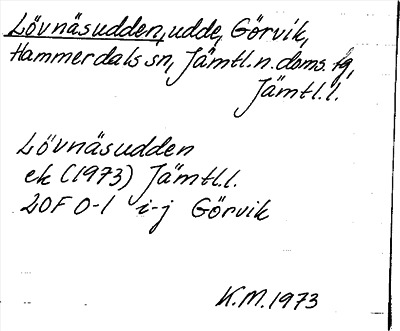 Lövnäsudden, udde, Görvik,
Hammerdals sn, Jämtl.n.doms. tg,
Jämtl.l.
Lövnäsudden
ek (1973) Jämtl.l.
20F 0-1 i-j Görvik
K.M. 1973